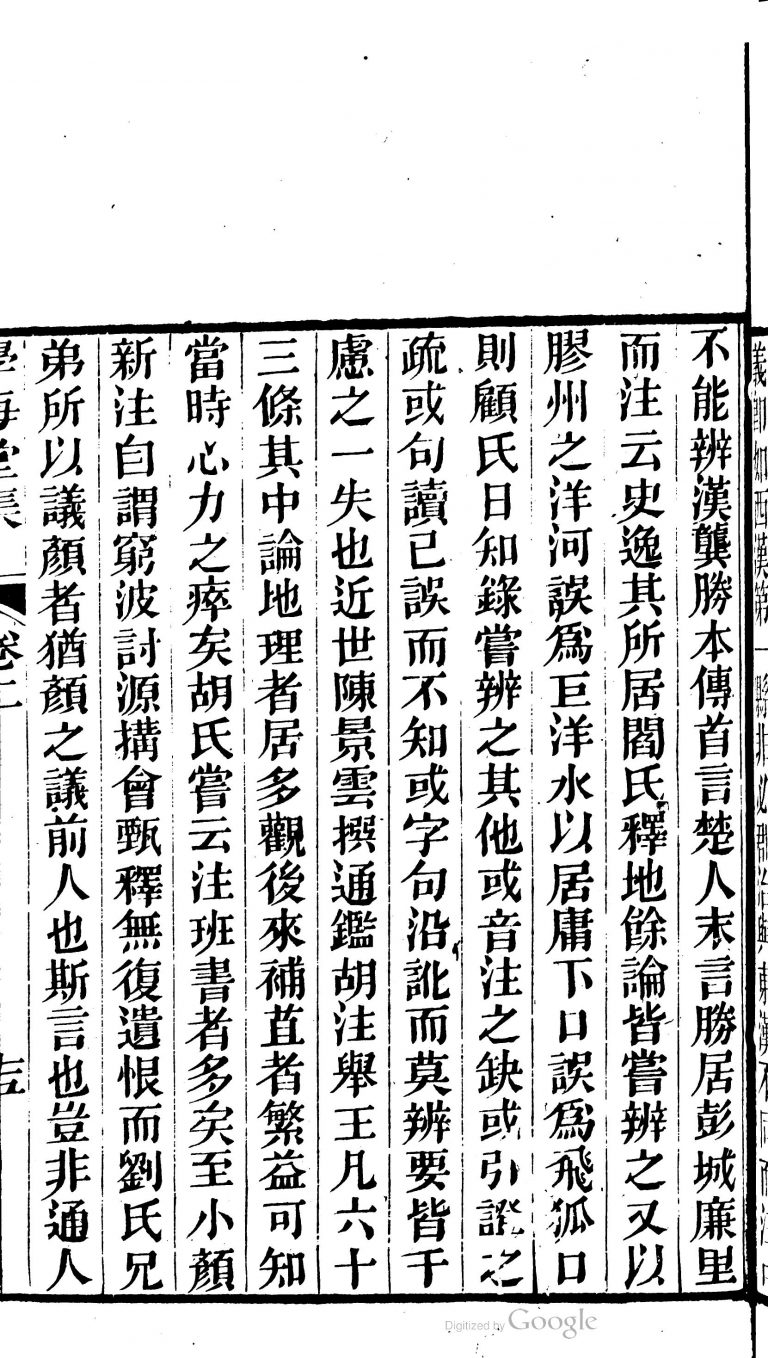 不能辨漢龔勝本傳首言楚人末言勝居彭城廉里
而注云史逸其所居閻氏釋地餘論皆嘗辨之又以
膠州之洋河誤爲巨洋水以居庸下口誤爲飛狐口
則顧氏日知錄嘗辨之其他或音注之缺或引證之
疏或句讀已誤而不知或字句沿訛而莫辨要皆千
慮之一失也近世陳景雲撰通鑑胡注舉王凡六十
三條其中論地理者居多觀後來補苴者繁益可知
當時心力之瘁矣胡氏嘗云注班書者多矣至小顏
新注自謂窮波討源搆會甄釋無復遺恨而劉氏兄
弟所以議顏者猶顏之議前人也斯言也豈非通人
學海堂集 卷二
Digitized by Google